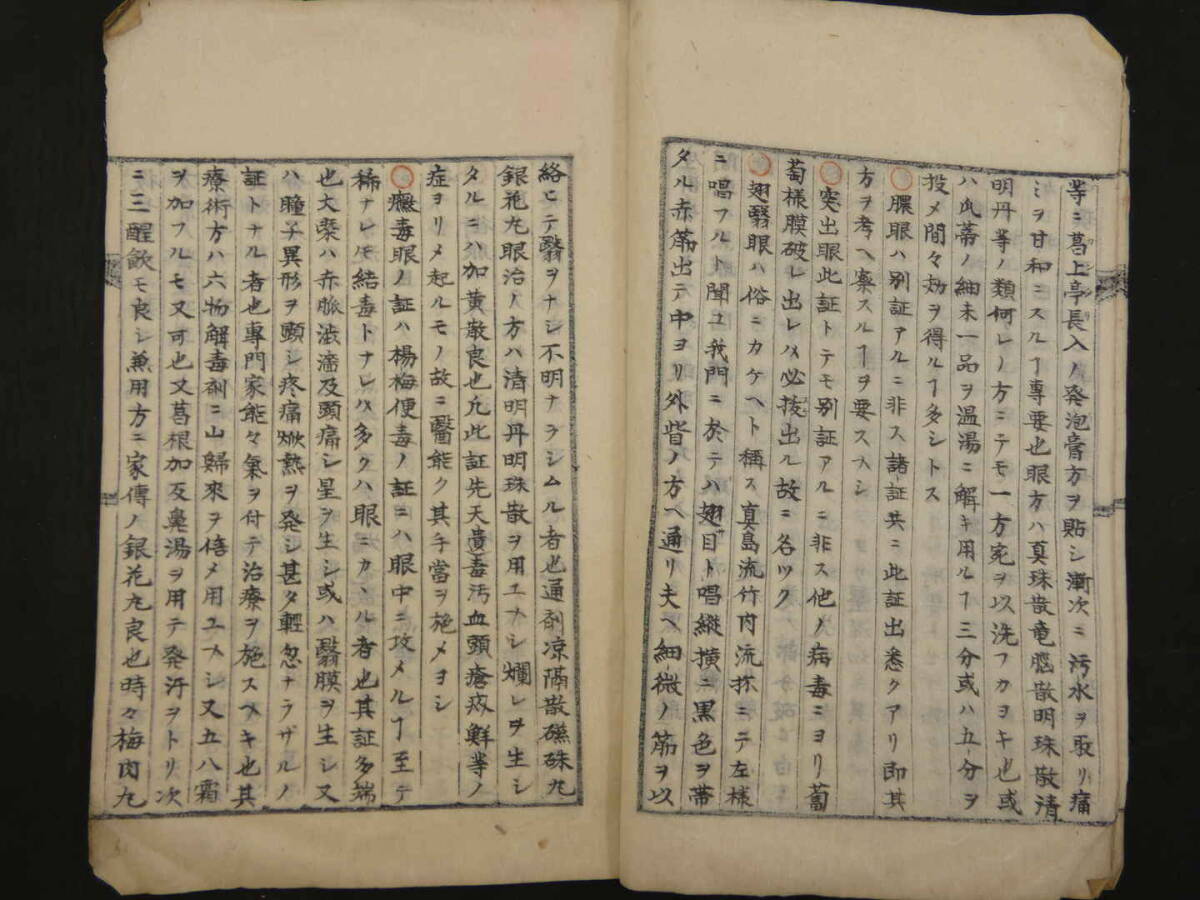 等ニ葛上亭長入ノ発泡膏方ヲ貼シ漸次ニ汚水ヲ取リ痛
ミヲ甘和ニスルヿ専要也眼方ハ真珠散竜脳散明珠散清
明丹等ノ類何レノ方ニテモ一方宛ヲ以洗フカヨキ也或
ハ瓜蒂ノ細末一品ヲ温湯ニ解キ用ルヿ三分或ハ五分ヲ
投メ間々効ヲ得ルヿ多シトス
○膿眼ハ別証アルニ非ス諸証共ニ此証出悉クアリ即其
方ヲ考ヘ察スルヿヲ要スヘシ
○突出眼此証トテモ別証アルニ非ス他ノ病毒ニヨリ葡
萄様膜破レ出レハ必抜出ル故ニ各ツク
○翅翳眼ハ俗ニカケヘト稱ス真島流竹内流抔ニテ左様
ニ唱フルト聞ユ我門ニ於テハ翅目ト唱縦横ニ黒色ヲ帯
タル赤筋出テ中ヨリ外眥ノ方ヘ通リ夫ヘ細微ノ筋ヲ以
絡ヒテ翳ヲナシ不明ナラシムル者也通剤凉隔散礞硃丸
銀花丸眼治ノ方ハ清明丹明珠散ヲ用ユヘシ爛レヲ生シ
タルニハ加黄散良也凢此証先天遺毒汚血頭瘡疥鮮等ノ
症ヨリメ起ルモノ故ニ醫能ク其手當ヲ施メヨシ
○黴毒眼ノ証ハ楊梅便毒ノ証ニハ眼中ニ攻メルヿ至テ
稀ナレモ結毒トナレハ多クハ眼ニカヽル者也其証多端
也大槩ハ赤脈澁滴及頭痛シ星ヲ生シ或ハ翳膜ヲ生シ又
ハ瞳子異形ヲ顕シ疼痛焮熱ヲ発シ甚タ輕忽ナラザルノ
証トナル者也專門家能々氣ヲ付テ治療ヲ施スヘキ也其
療術方ハ六物解毒剤ニ山歸來ヲ倍メ用ユヘシ又五八霜
ヲ加フルモ又可也又葛根加反鼻湯ヲ用テ発汗ヲトリ次
ニ三醒飲モ良シ兼用方ニ家傳ノ銀花丸良也時々梅肉丸